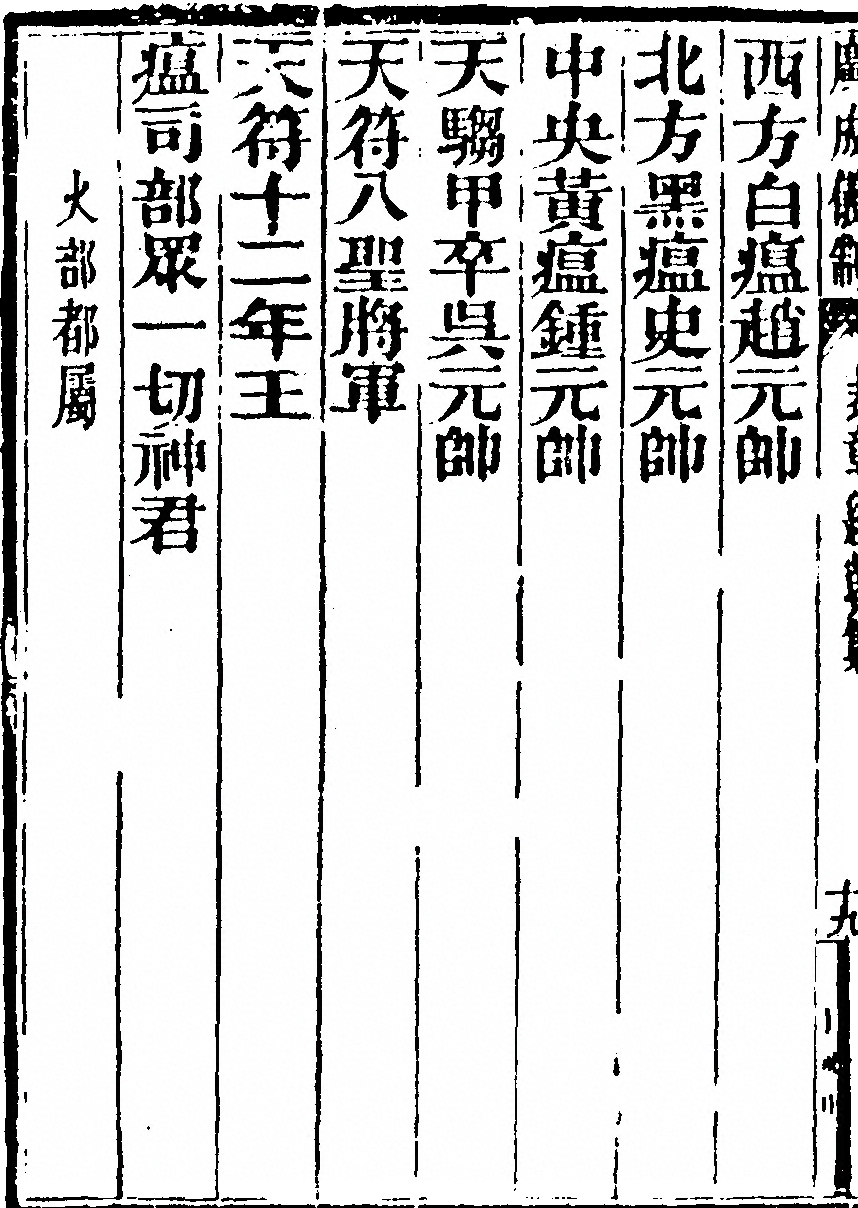 西方白瘟趙元帥
北方黑瘟史元帥
中央黃瘟鍾元帥
天騶甲卒吳元帥
天符八聖將軍
天符十二年王
瘟司部眾一切神君
火部都屬
十九